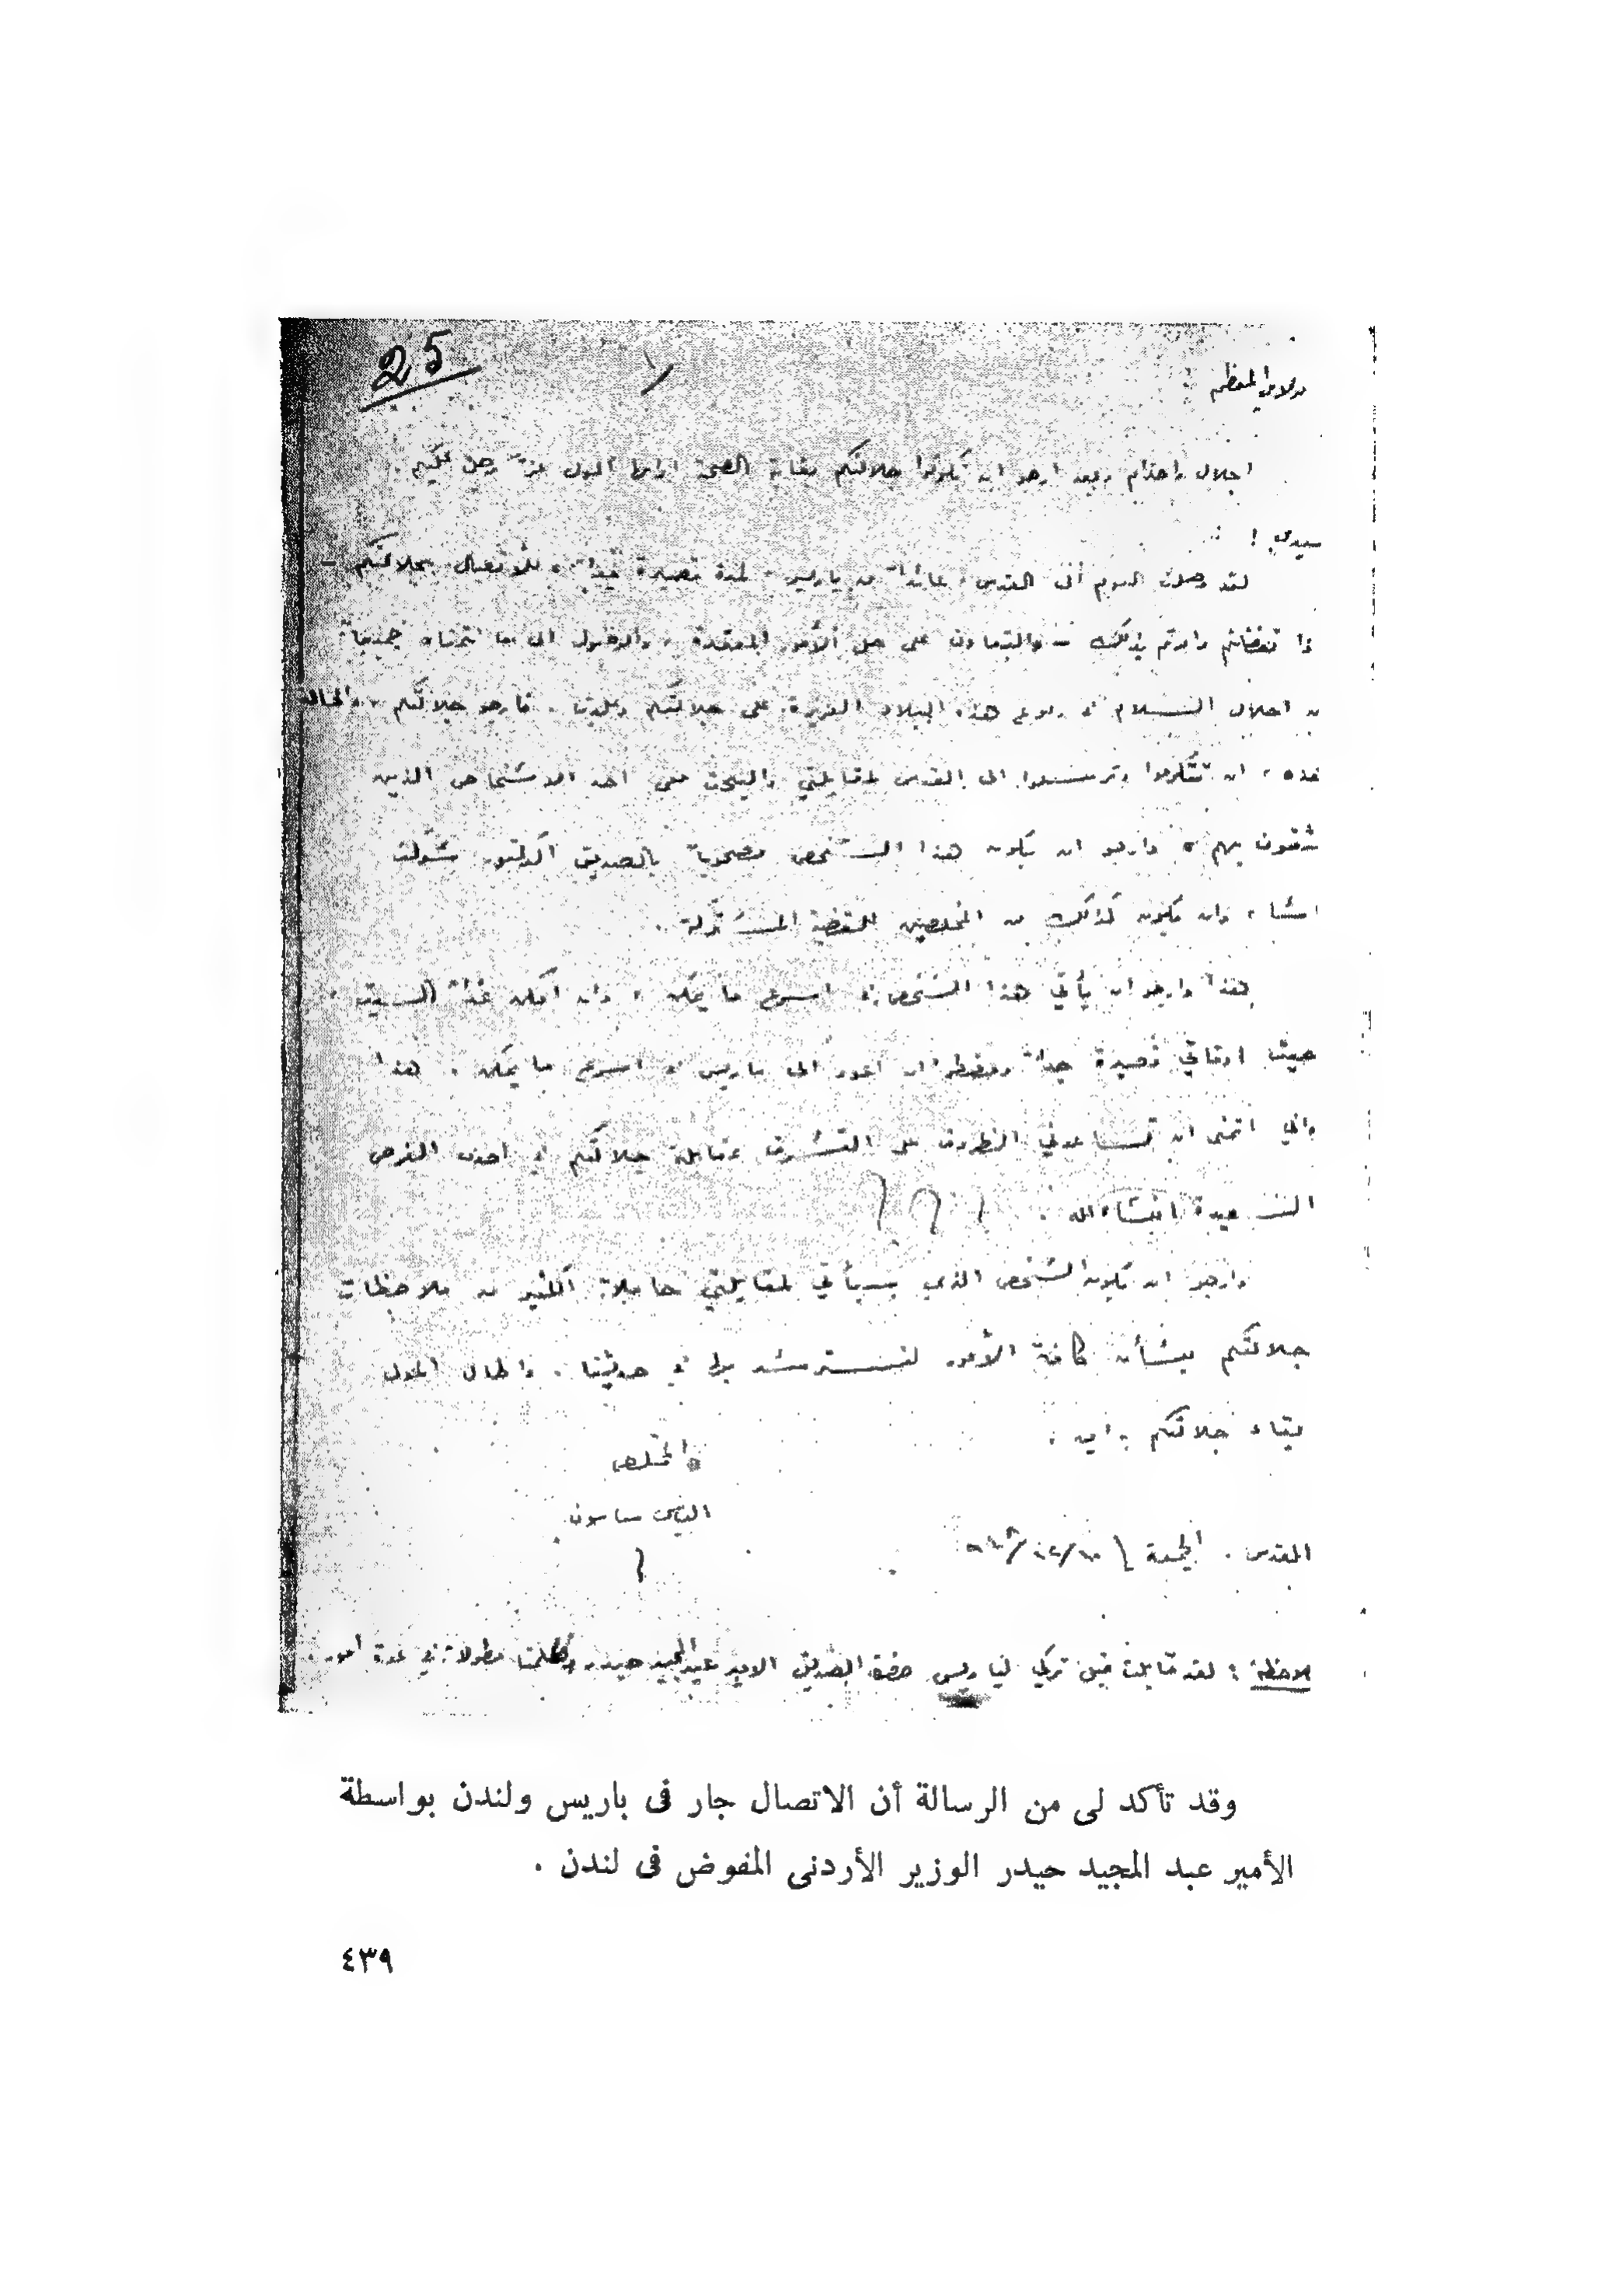 25
مولاي المعظم
اجلال واحترام وبعد ارجو ان تكونوا جلالتكم بغاية الصحة ادامها المولى عز وجل عليكم .
سيدي !
لقد وصلت اليوم الى القدس ، عائداً من باريس ، لمدة قصيرة جداً ، للأتصال بجلالتكم –
اذا تفضلتم وامرتم بذلك – والتعاون على حل الأمور المعقدة ، والوصول الى ما نتمناه جميعاً
من احلال السلام في ربوع هذه البلاد العزيزة على جلالتكم وعلينا . فارجو جلالتكم ، والحالة
هذه ، ان تتكرموا وترسلوا الى القدس لمقابلتي والبحث معي احد الاشخاص الذين
تثقون بهم ، وارجو ان يكون هذا الشخص مصحوباً بالصديق الدكتور شوكت
، وان يكون كذلك من المخلصين للقضية المشتركة .
هذا وارجو ان يأتي هذا الشخص في اسرع ما يمكن ، وان امكن غداً السبت ،
حيث اوقاتي قصيرة جداً ومضطر ان اعود الى باريس في اسرع ما يمكن . هذا
واني اتمنى ان تساعدني الظروف على التشرف بمقابلة جلالتكم في احدى الفرص
السعيدة انشاء الله .
وارجو ان يكون الشخص الذي سيأتي لمقابلتي حاملاً الكثير من ملاحظات
جلالتكم بشأن كافة الأمور لنسترشد بها في حديثنا . واطال المولى
بقاء جلالتكم .
المخلص
الياس ساسون
القدس . الجمعة
ملاحظة : لقد قابلت قبل تركي لباريس حضرة الصديق الامير عبد المجيد حيدر وتكلمنا مطولاً في عدة أمور .
وقد تأكد لى من الرسالة أن الاتصال جار فى باريس ولندن بواسطة
الأمير عبد المجيد حيدر الوزير الأردنى المفوض فى لندن .
٤٣٩